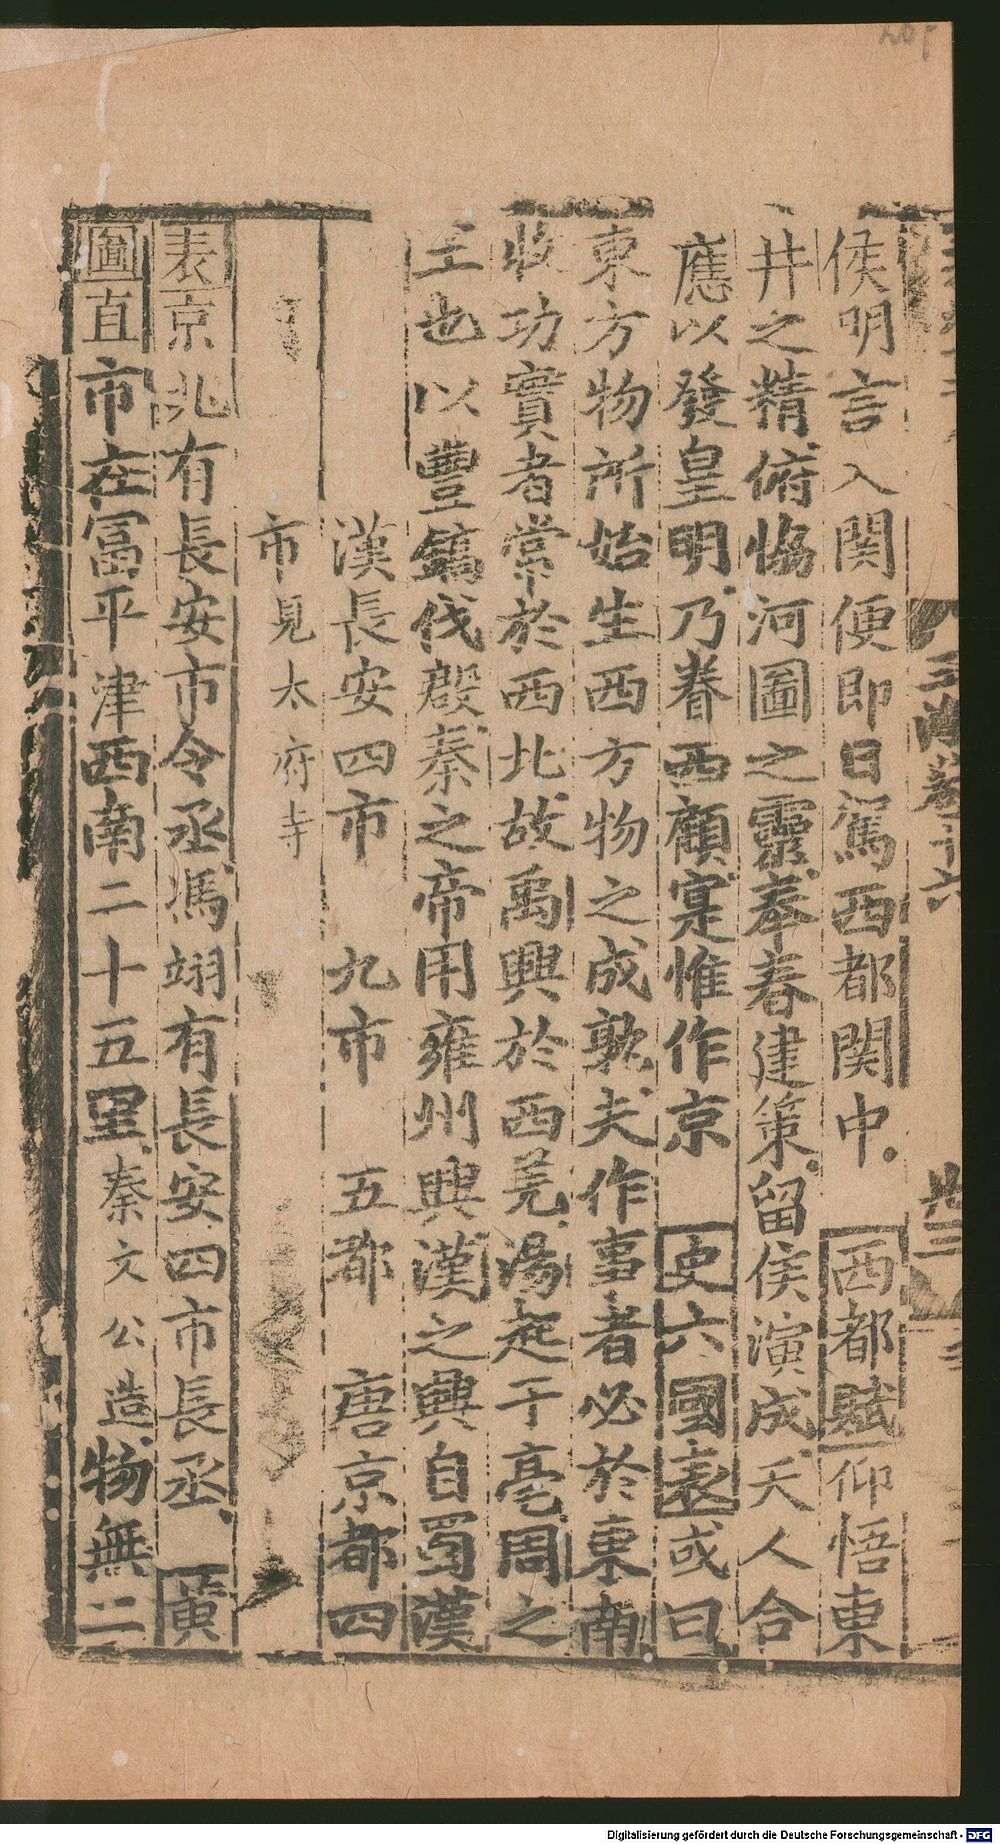 侯明言入関便即日駕西都関中西都賦仰悟東
井之精俯恊河圖之靈奉春建策留侯演成天人合
應以發皇明乃眷西顧寔惟作京史六國表或曰
東方物所始生西方物之成孰夫作事者必於東南
收功實者常於西北故禹興於西羌湯起于亳周之
王也以豐鎬伐殷秦之帝用雍州興漢之興自蜀漢
漢長安四市 九市 五都 唐京都四
市見太府寺
表京兆有長安市令丞馮翊有長安四市長丞黃
圖直市在冨平津西南二十五里秦文公造物無二
玉海 十六
Digitalisierung gefördert durch die Deutsche Forschungsgemeinschaft - DFG